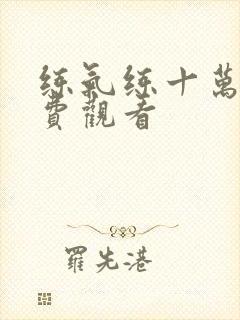 練氣練十萬
費觀看
羅先港